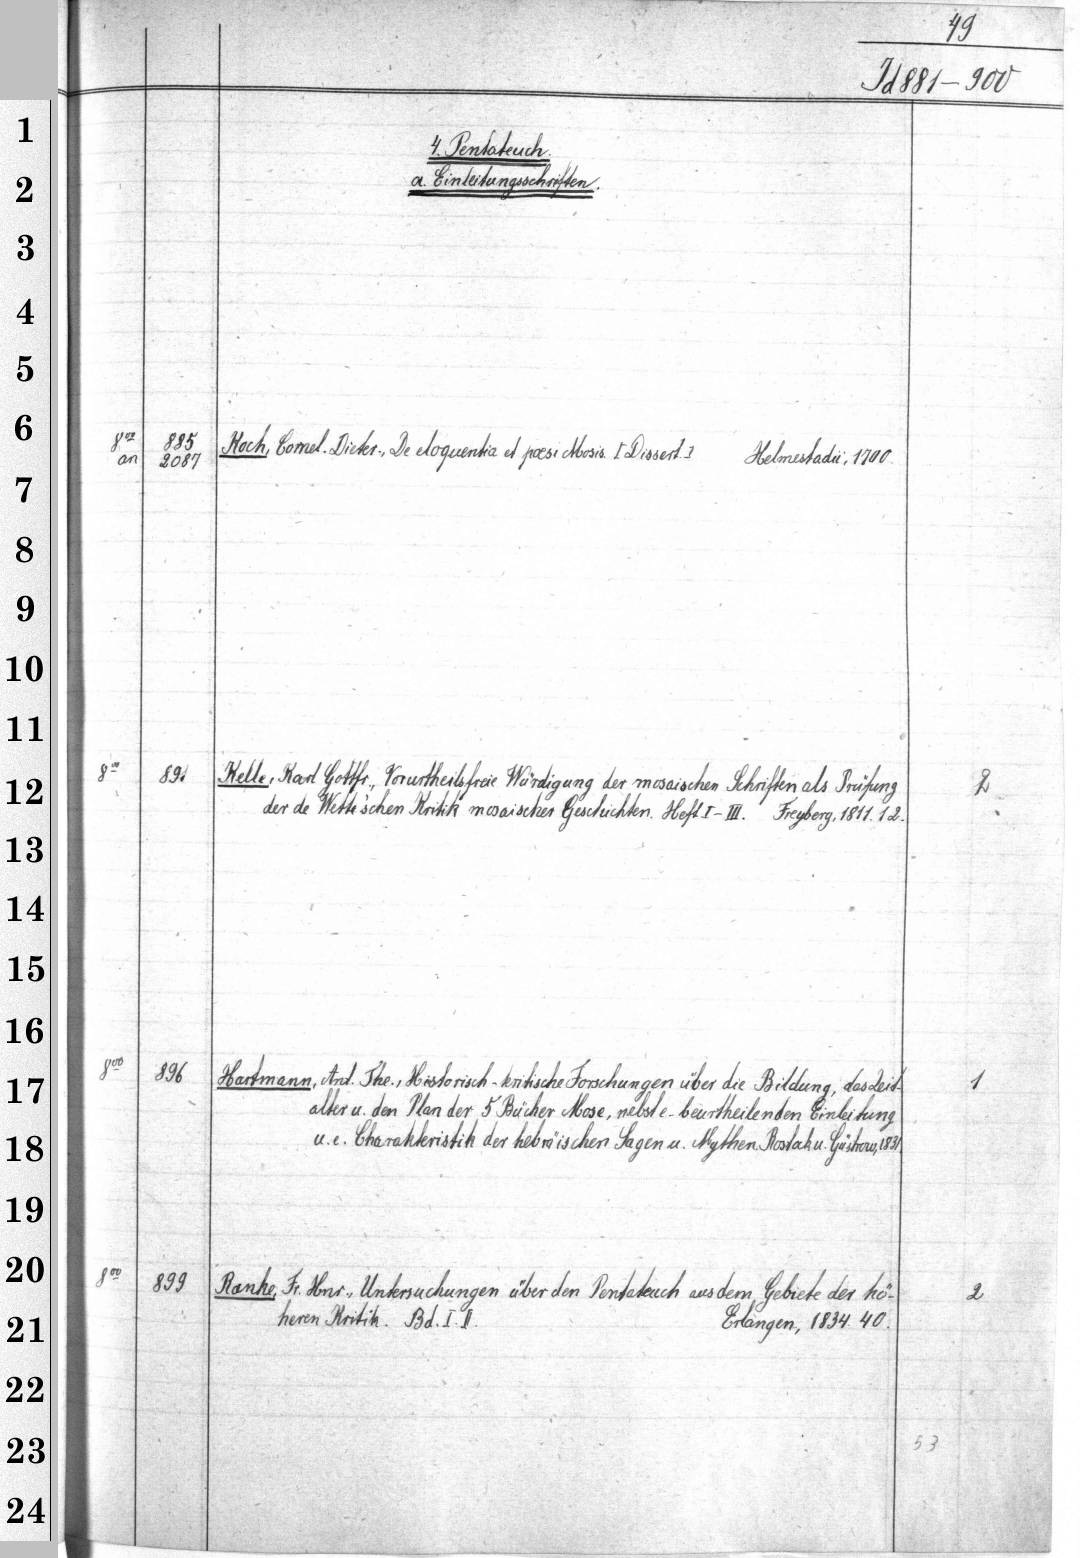 49
Id 881-900
1
4. Pentateuch.
2
a. Einleitungsschriften.
3
4
5
6
8vo 885 Koch, Cornel. Dieter., De eloquentia et poesi Mosis. [Dissert.] Helmestadii, 1700.
an 2087
7
8
9
10
11
12
8vo 891 Kelle, Karl Gottfr., Vorurtheilsfreie Würdigung der mosaischen Schriften als Prüfung 2
der de Wette'schen Kritik mosaischer Geschichten. Heft I-III. Freyberg, 1811. 12.
13
14
15
16
17
8vo 896 Hartmann, Ant. The., Historisch-kritische Forschungen über die Bildung, das Zeit- 1
alter u. den Plan der 5 Bücher Mose, nebst e. beurtheilenden Einleitung
18
u. e. Charakteristik der hebräischen Sagen u. Mythen. Rostock u. Güstrow, 1831.
19
20
8vo 899 Ranke, Fr. Hnr., Untersuchungen über den Pentateuch aus dem Gebiete der hö- 2
21
heren Kritik. Bd. I. II. Erlangen, 1834. 40.
22
23
53
24